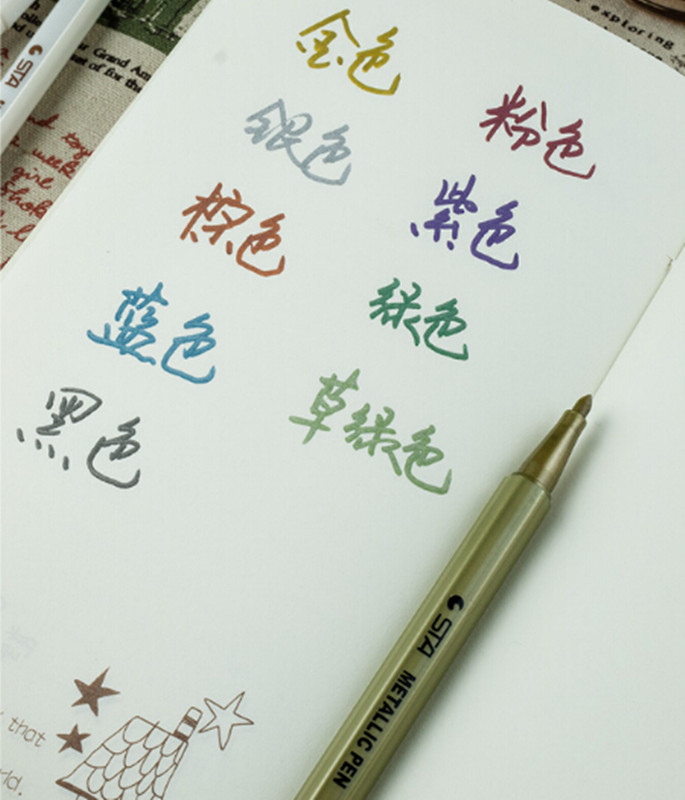 金色
粉色
银色
紫色
棕色
绿色
蓝色
草绿色
黑色
STA METALLIC PEN
STA
exploring
Grand Am
set of for the
that
rld.
girl